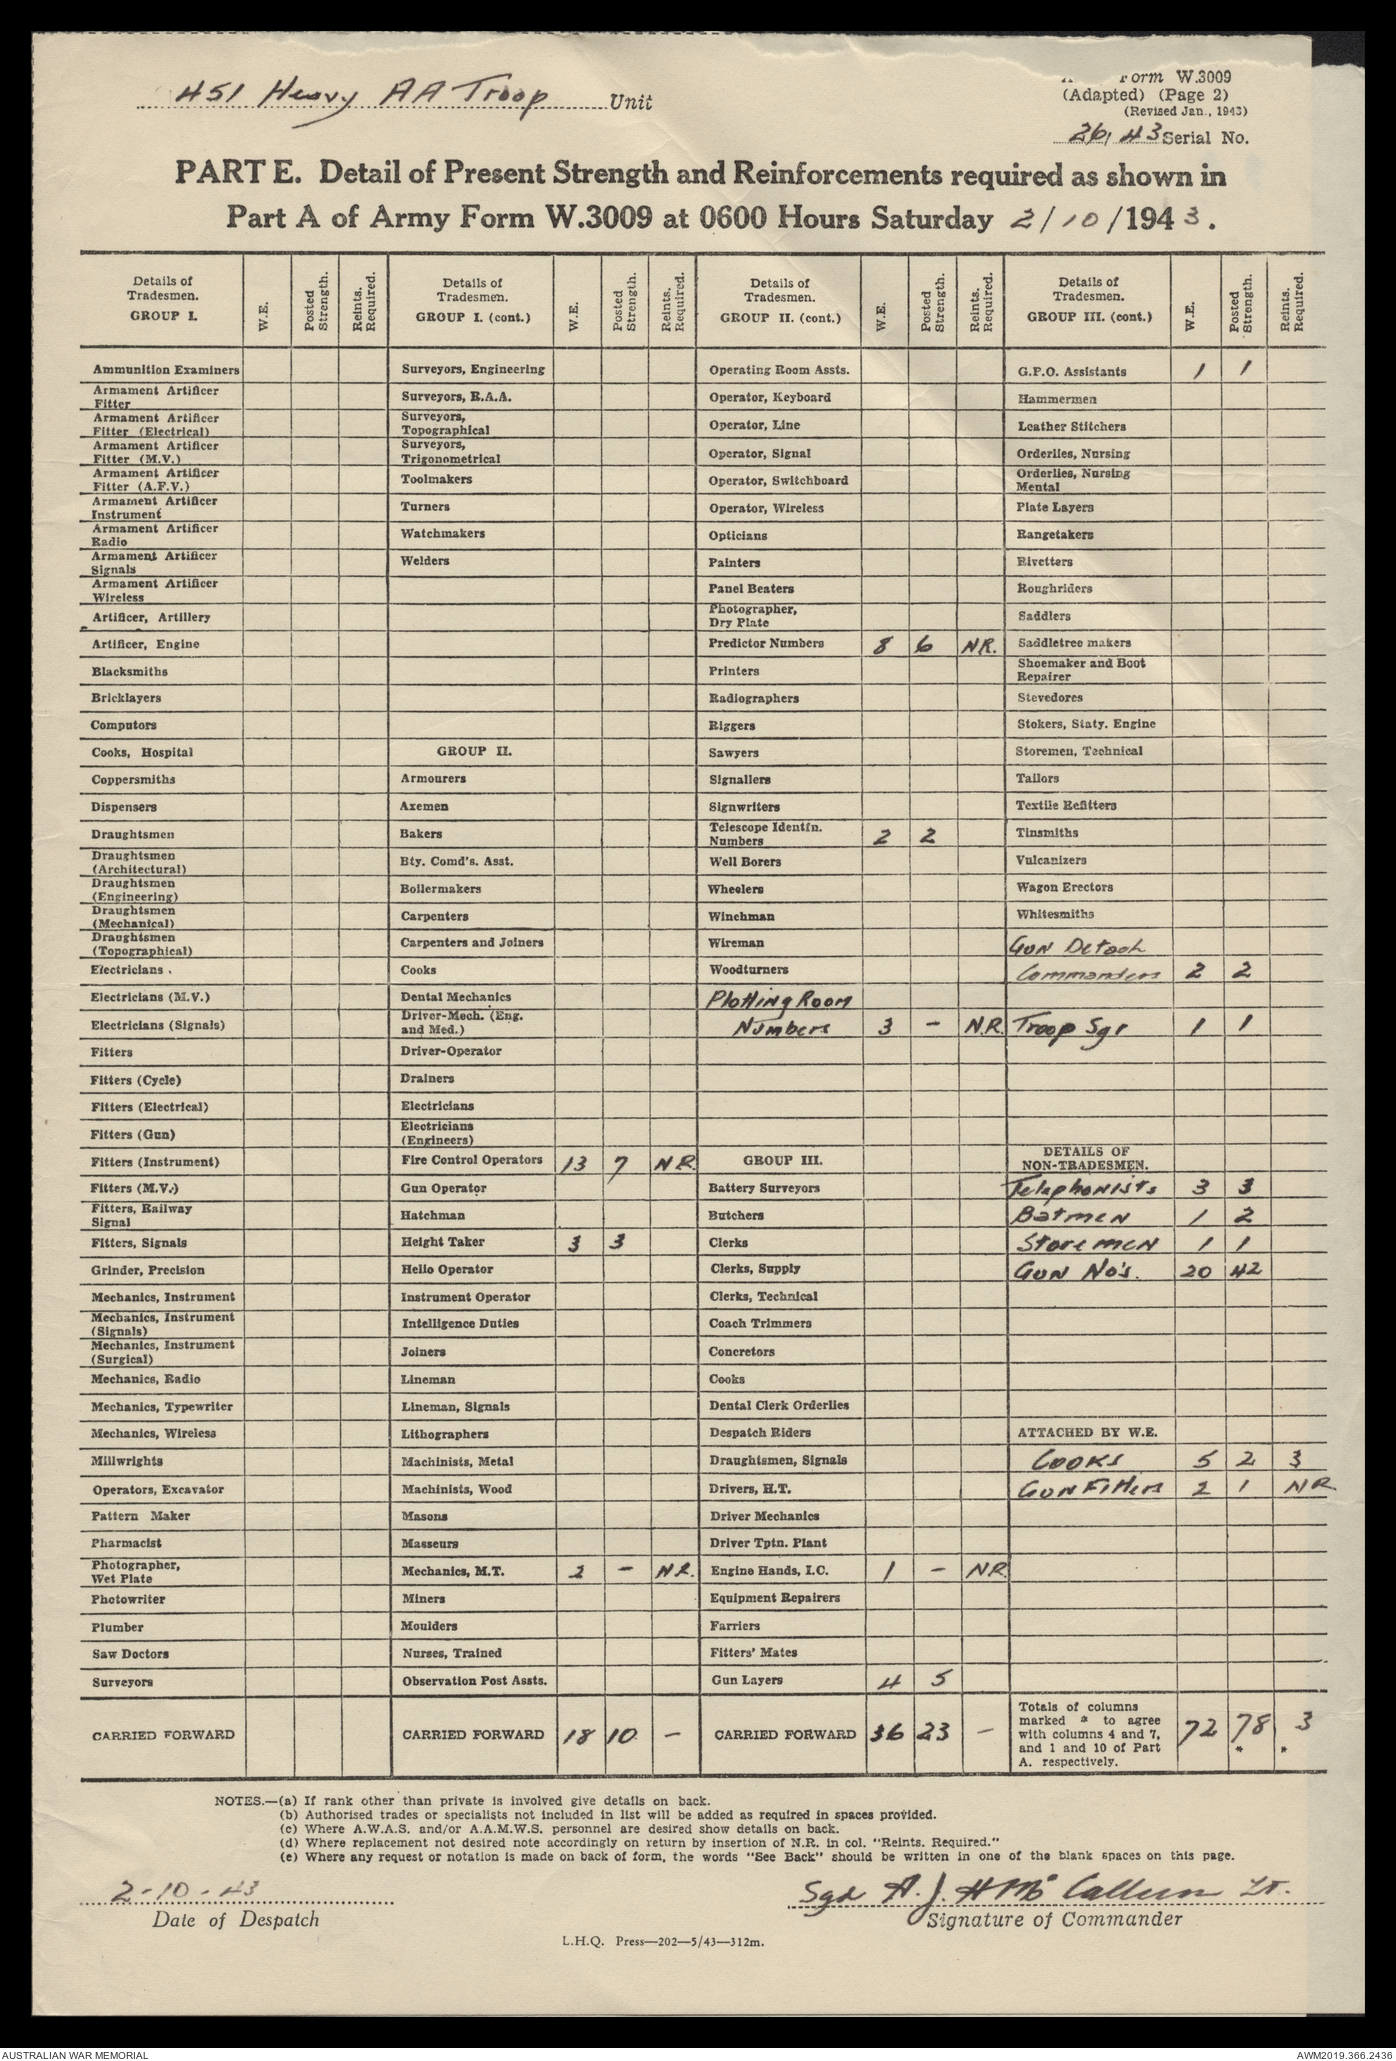 451 Heavy AA Troop Unit
Form W.3009
(Adapted) (Page 2)
(Revised Jan., 1943)
26/43 Serial No.
PART E. Detail of Present Strength and Reinforcements required as shown in
Part A of Army Form W.3009 at 0600 Hours Saturday 2/10/1943.
Details of Tradesmen. GROUP I. W.E. Posted Strength. Reints. Required. Details of Tradesmen. GROUP I. (cont.) W.E. Posted Strength. Reints. Required. Details of Tradesmen. GROUP II. (cont.) W.E. Posted Strength. Reints. Required. Details of Tradesmen. GROUP III. (cont.) W.E. Posted Strength. Reints. Required.
Ammunition Examiners Surveyors, Engineering Operating Room Assts. G.P.O. Assistants 1 1
Armament Artificer Fitter Surveyors, R.A.A. Operator, Keyboard Hammermen
Armament Artificer Fitter (Electrical) Surveyors, Topographical Operator, Line Leather Stitchers
Armament Artificer Fitter (M.V.) Surveyors, Trigonometrical Operator, Signal Orderlies, Nursing
Armament Artificer Fitter (A.F.V.) Toolmakers Operator, Switchboard Orderlies, Nursing Mental
Armament Artificer Instrument Turners Operator, Wireless Plate Layers
Armament Artificer Radio Watchmakers Opticians Rangetakers
Armament Artificer Signals Welders Painters Rivetters
Armament Artificer Wireless Panel Beaters Roughriders
Artificer, Artillery Photographer, Dry Plate Saddlers
Artificer, Engine Predictor Numbers 8 6 N.R. Saddletree makers
Blacksmiths Printers Shoemaker and Boot Repairer
Bricklayers Radiographers Stevedores
Computors Riggers Stokers, Staty. Engine
Cooks, Hospital GROUP II. Sawyers Storemen, Technical
Coppersmiths Armourers Signallers Tailors
Dispensers Axemen Signwriters Textile Refitters
Draughtsmen Bakers Telescope Identfn. Numbers 2 2 Tinsmiths
Draughtsmen (Architectural) Bty. Comd's. Asst. Well Borers Vulcanizers
Draughtsmen (Engineering) Boilermakers Wheelers Wagon Erectors
Draughtsmen (Mechanical) Carpenters Winchman Whitesmiths
Draughtsmen (Topographical) Carpenters and Joiners Wireman Gun Detach
Electricians Cooks Woodturners Commanders 2 2
Electricians (M.V.) Dental Mechanics Plotting Room
Electricians (Signals) Driver-Mech. (Eng. and Med.) Numbers 3 - N.R. Troop Sgt 1 1
Fitters Driver-Operator
Fitters (Cycle) Drainers
Fitters (Electrical) Electricians
Fitters (Gun) Electricians (Engineers)
Fitters (Instrument) Fire Control Operators 13 7 N.R. GROUP III. DETAILS OF NON-TRADESMEN.
Fitters (M.V.) Gun Operator Battery Surveyors Telephonists 3 3
Fitters, Railway Signal Hatchman Butchers Batmen 1 2
Fitters, Signals Height Taker 3 3 Clerks Storemen 1 1
Grinder, Precision Helio Operator Clerks, Supply Gun No's. 20 42
Mechanics, Instrument Instrument Operator Clerks, Technical
Mechanics, Instrument (Signals) Intelligence Duties Coach Trimmers
Mechanics, Instrument (Surgical) Joiners Concretors
Mechanics, Radio Lineman Cooks
Mechanics, Typewriter Lineman, Signals Dental Clerk Orderlies
Mechanics, Wireless Lithographers Despatch Riders ATTACHED BY W.E.
Millwrights Machinists, Metal Draughtsmen, Signals Cooks 5 2 3
Operators, Excavator Machinists, Wood Drivers, H.T. Gun Fitters 2 1 N.R.
Pattern Maker Masons Driver Mechanics
Pharmacist Masseurs Driver Tptn. Plant
Photographer, Wet Plate Mechanics, M.T. 2 - N.R. Engine Hands, I.C. 1 - N.R.
Photowriter Miners Equipment Repairers
Plumber Moulders Farriers
Saw Doctors Nurses, Trained Fitters' Mates
Surveyors Observation Post Assts. Gun Layers 4 5
CARRIED FORWARD CARRIED FORWARD 18 10 - CARRIED FORWARD 36 23 - Totals of columns marked * to agree with columns 4 and 7, and 1 and 10 of Part A. respectively. 72 78 * 3 *
NOTES.—(a) If rank other than private is involved give details on back.
(b) Authorised trades or specialists not included in list will be added as required in spaces provided.
(c) Where A.W.A.S. and/or A.A.M.W.S. personnel are desired show details on back.
(d) Where replacement not desired note accordingly on return by insertion of N.R. in col. "Reints. Required."
(e) Where any request or notation is made on back of form, the words "See Back" should be written in one of the blank spaces on this page.
2-10-43 Sgd A. J. H Mc Callum Lt.
Date of Despatch Signature of Commander
L.H.Q. Press—202—5/43—312m.
AUSTRALIAN WAR MEMORIAL AWM2019.366.2436